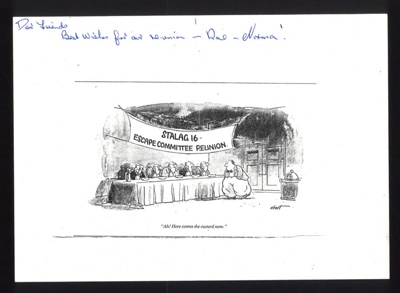 Best Wishes for our reunion —
STALAG 16 -
ESCAPE COMMITTEE REUNION
"Ah! Here comes the custard now."